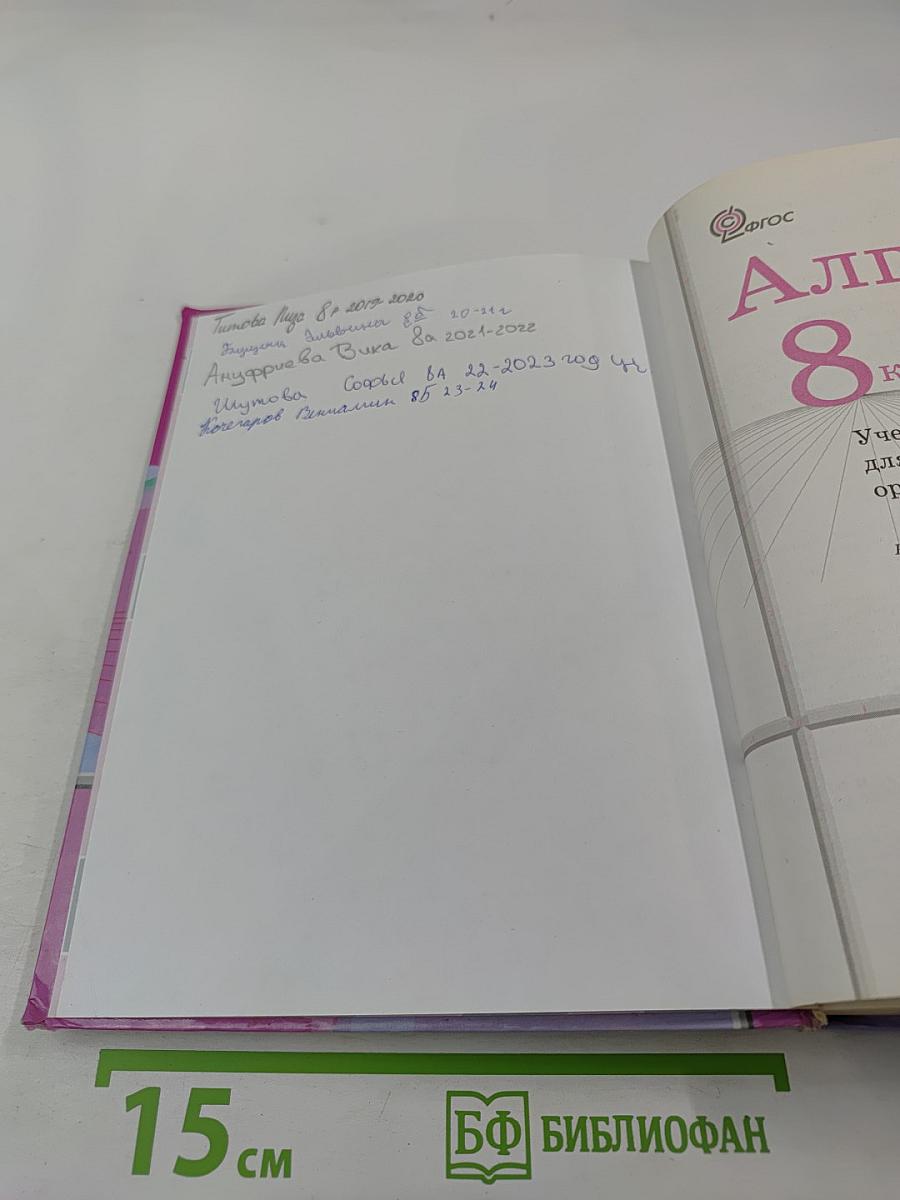 Титова Лиза 8 2019-2020
Эльвины 8Б 20-21г
Ануфриева Вика 8а 2021-2022
Шутова Софья 8А 22-2023 год
Кочегаров Вениамин 8Б 23-24
ФГОС
Алг
8 к
Уче
для
ор
15 см
БФ БИБЛИОФАН